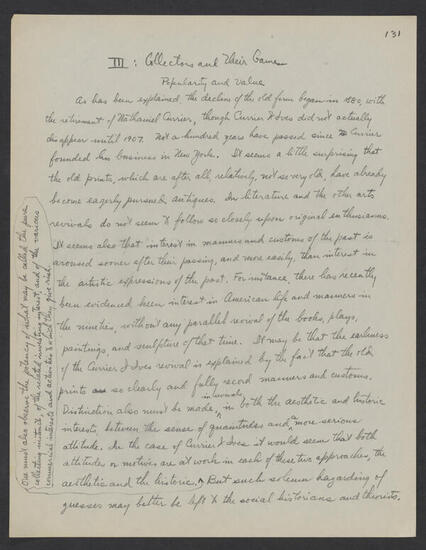 131
III : Collectors and Their Game
Popularity and Value
As has been explained the decline of the old firm began in 1880, with
the retirement of Nathaniel Currier, though Currier & Ives did not actually
disappear until 1907. Not a hundred years have passed since Currier
founded his business in New York. It seems a little surprising that
the old prints, which are after all, relatively, not so very old, have already
become eagerly pursued antiques. In literature and the other arts
revivals do not seem to follow so closely upon original enthusiasms.
It seems also that interest in manners and customs of the past is
aroused sooner after their passing, and more easily, than interest in
the artistic expressions of the past. For instance, there has recently
been evidenced keen interest in American life and manners in
the nineties, without any parallel revival of the books, plays,
paintings, and sculpture of that time. It may be that the earliness
of the Currier & Ives revival is explained by the fact that the old
prints so clearly and fully record manners and customs.
Distinction also must be made, in both the aesthetic and historic
interests, between the sense of quaintness and a more serious
attitude. In the case of Currier & Ives it would seem that both
attitudes or motives are at work in each of these two approaches, the
aesthetic and the historic. But such solemn hazarding of
guesses may better be left to the social historians and theorists.
One must also observe the potency of what may be called the pure
collecting instinct, of the related investing interest, and of the various
commercial interests and activities to which they give rise.